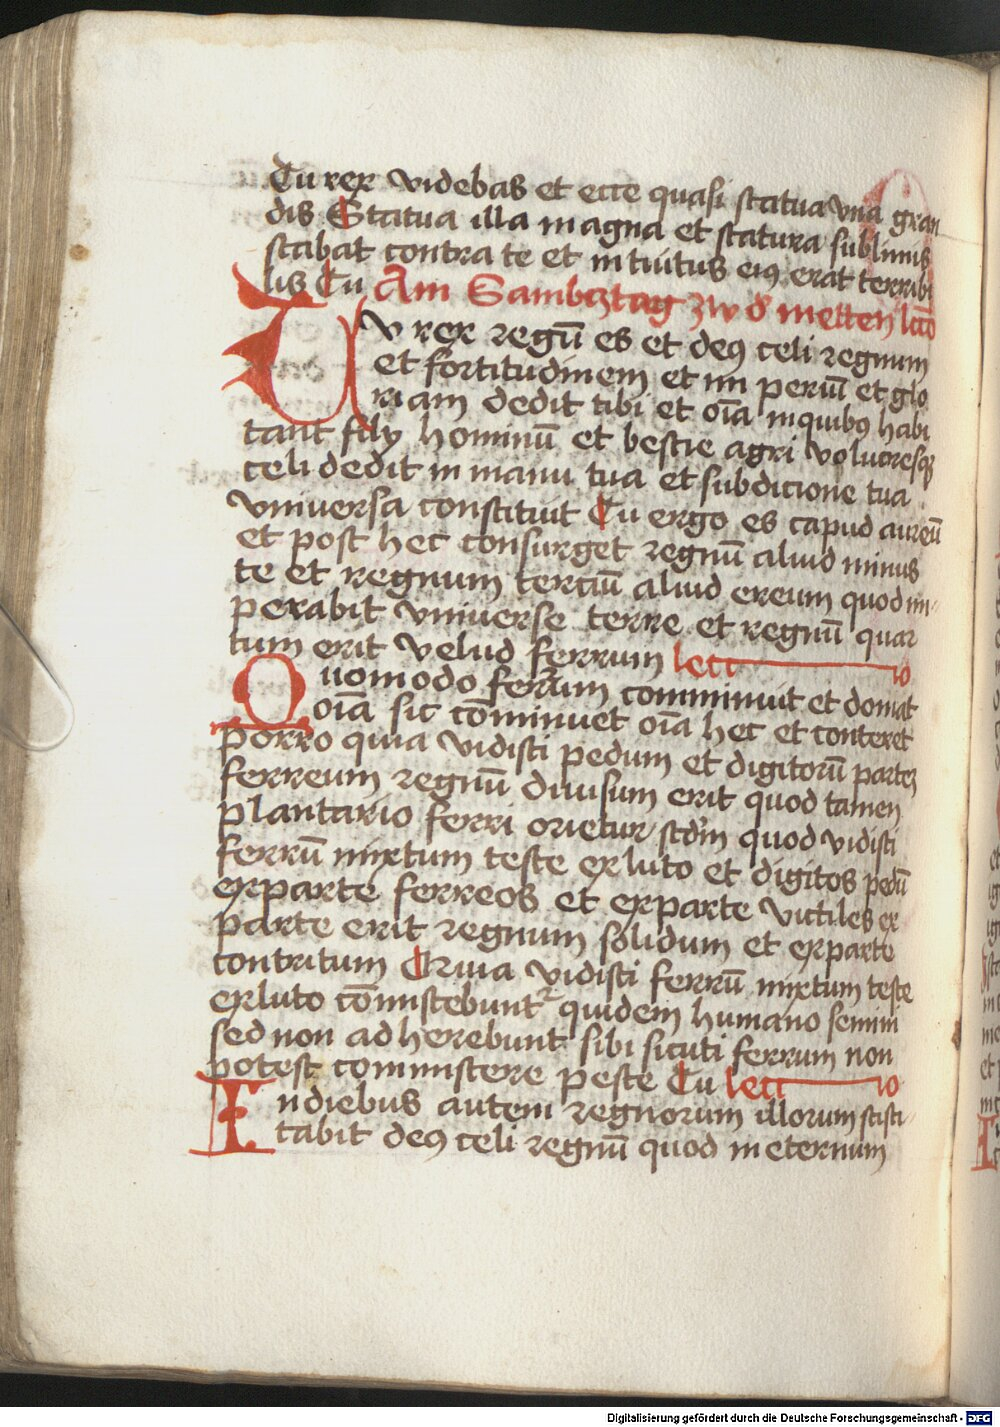 Tu rex videbas et ecce quasi statua una gran
dis Statua illa magna et statura sublimis
stabat contra te et intuitus eiꝰ erat terribi
lis Tu Am Sambtztag zw d' metten lcco
Tu rex regū es et deꝰ celi regnum
et fortitudinem et im periū et glo
riam dedit tibi et oīa inquibꝰ habi
tant filÿ hominū et bestie agri volucresqꝫ
celi dedit in manu tua et subdicione tua
universa constituit Tu ergo es capud aureū
et post hec consurget regnū aliud minus
te et regnum terciū aliud ereum quod im
perabit universe terre et regnū quar
tum erit velud ferrum lectio
Quomodo ferrum comminuit et domat
oīa sic cōminuet oīa hec et conteret
porro quia vidisti pedum et digitorū partez
ferreum regnū divisum erit quod tamen
plantario ferri orietur scdm quod vidisti
ferrū mixtum teste exluto et digitos pedū
exparte ferreos et exparte victiles ex
parte erit regnum solidum et exparte
contritum Quia vidisti ferrū mixtum teste
exluto cōmistebunt᷑ quidem humano semini
sed non ad herebunt sibi sicuti ferrum non
potest commistere peste Tu lectio
In diebus autem regnorum illorum scisti
tabit deꝰ celi regnū quod in eternum
Digitalisierung gefördert durch die Deutsche Forschungsgemeinschaft - DFG